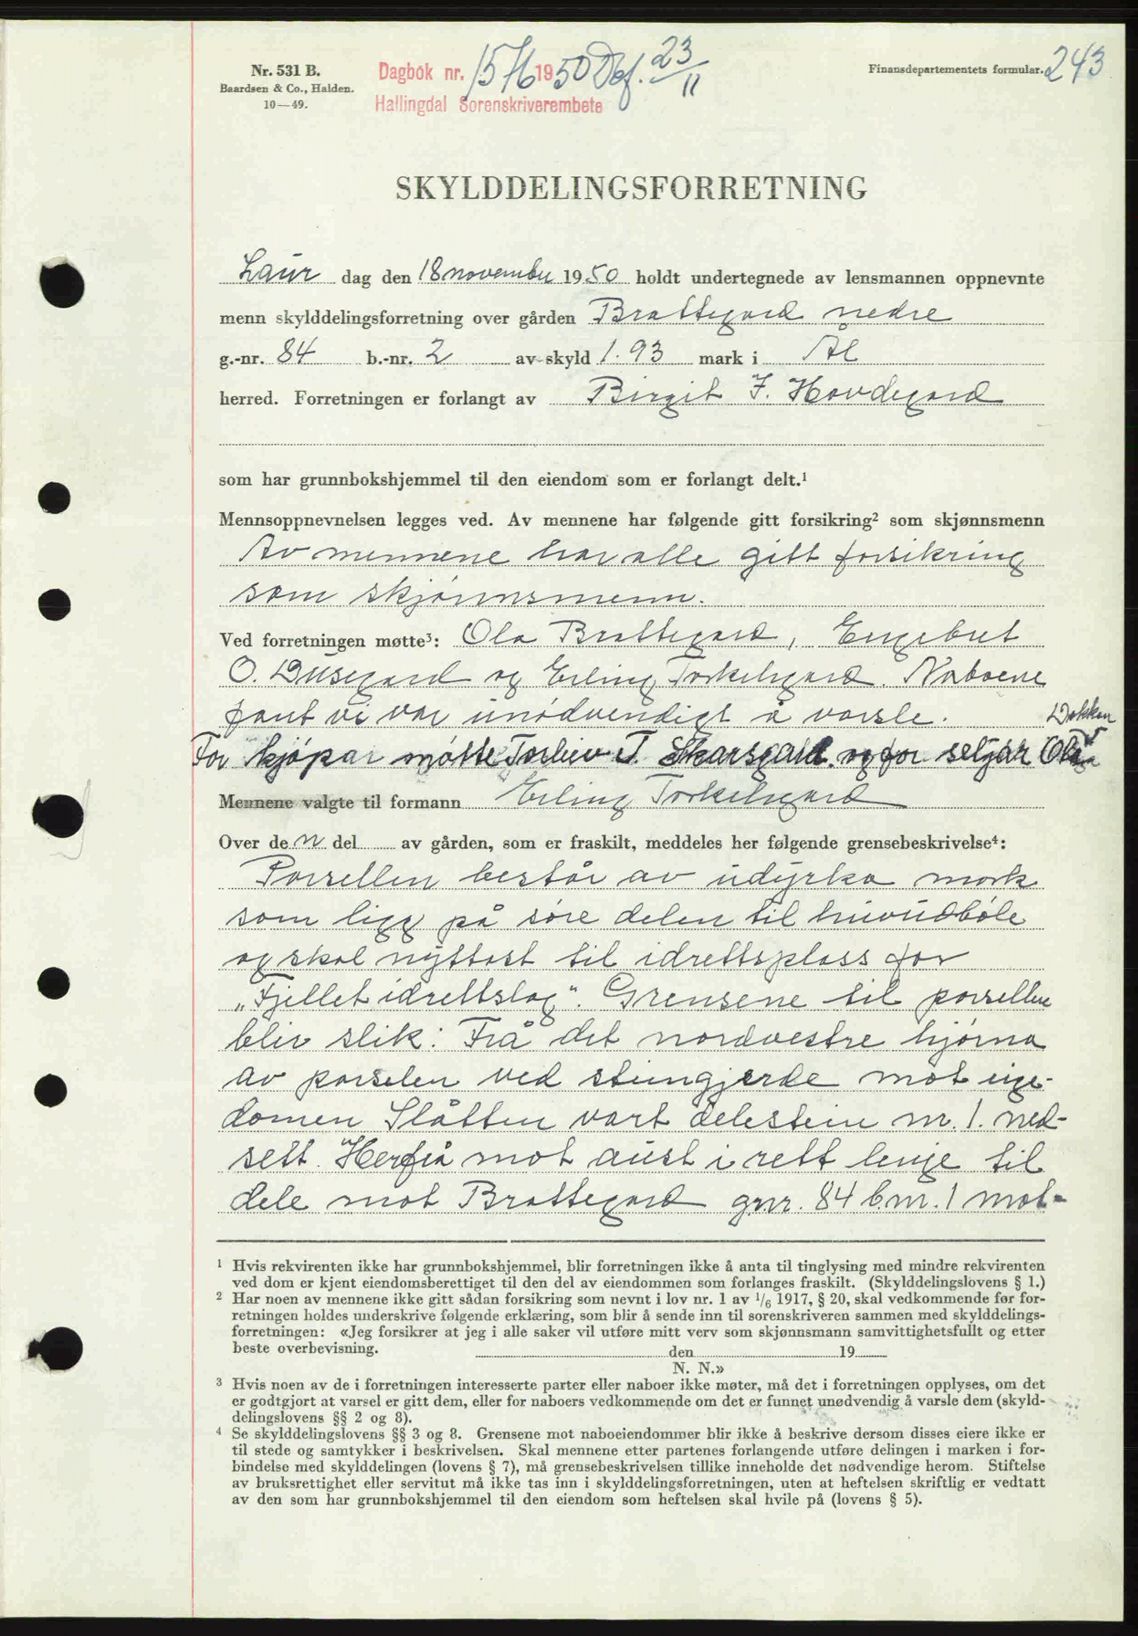 Nr. 531 B.
Baardsen & Co., Halden.
10—49.
Dagbok nr. 1576 1950 Def. 23/11
Hallingdal Sorenskriverembete
Finansdepartementets formular. 243
SKYLDDELINGSFORRETNING
Laur dag den 18 november 1950 holdt undertegnede av lensmannen oppnevnte
menn skylddelingsforretning over gården Brattegard nedre
g.-nr. 84 b.-nr. 2 av skyld 1.93 mark i Ål
herred. Forretningen er forlangt av Birgit F. Hovdegard
som har grunnbokshjemmel til den eiendom som er forlangt delt.¹
Mennsoppnevnelsen legges ved. Av mennene har følgende gitt forsikring² som skjønnsmenn
Av mennene har alle gitt forsikring
som skjønnsmenn.
Ved forretningen møtte³: Ola Brattegard, Engebret
O. og Erling Torkelsgard. Naboene
fant vi var unødvendigt å varsle. Dokken
For kjöpar møtte Torleiv T. Skarsgard og for seljar Ola
Mennene valgte til formann Erling Torkelsgard
Over den del av gården, som er fraskilt, meddeles her følgende grensebeskrivelse⁴:
Parsellen består av udyrka mark
som ligg på søre delen til huvudbøle
og skal nyttast til idrettsplass for
„Fjellet idrettslag". Grensene til parsellen
blir slik: Frå det nordvestre hjørna
av parselen ved steingjerde mot eige-
domen Slåtten vart delestein nr. 1. ned-
sett. Herfrå mot aust i rett lenje til
dele mot Brattegard gnr. 84 b.nr. 1 mot-
¹ Hvis rekvirenten ikke har grunnbokshjemmel, blir forretningen ikke å anta til tinglysing med mindre rekvirenten
ved dom er kjent eiendomsberettiget til den del av eiendommen som forlanges fraskilt. (Skylddelingslovens § 1.)
² Har noen av mennene ikke gitt sådan forsikring som nevnt i lov nr. 1 av 1/6 1917, § 20, skal vedkommende før for-
retningen holdes underskrive følgende erklæring, som blir å sende inn til sorenskriveren sammen med skylddelings-
forretningen: «Jeg forsikrer at jeg i alle saker vil utføre mitt verv som skjønnsmann samvittighetsfullt og etter
beste overbevisning. den 19
N. N.»
³ Hvis noen av de i forretningen interesserte parter eller naboer ikke møter, må det i forretningen opplyses, om det
er godtgjort at varsel er gitt dem, eller for naboers vedkommende om det er funnet unødvendig å varsle dem (skyld-
delingslovens §§ 2 og 8).
⁴ Se skylddelingslovens §§ 3 og 8. Grensene mot naboeiendommer blir ikke å beskrive dersom disses eiere ikke er
til stede og samtykker i beskrivelsen. Skal mennene etter partenes forlangende utføre delingen i marken i for-
bindelse med skylddelingen (lovens § 7), må grensebeskrivelsen tillike inneholde det nødvendige herom. Stiftelse
av bruksrettighet eller servitut må ikke tas inn i skylddelingsforretningen, uten at heftelsen skriftlig er vedtatt
av den som har grunnbokshjemmel til den eiendom som heftelsen skal hvile på (lovens § 5).